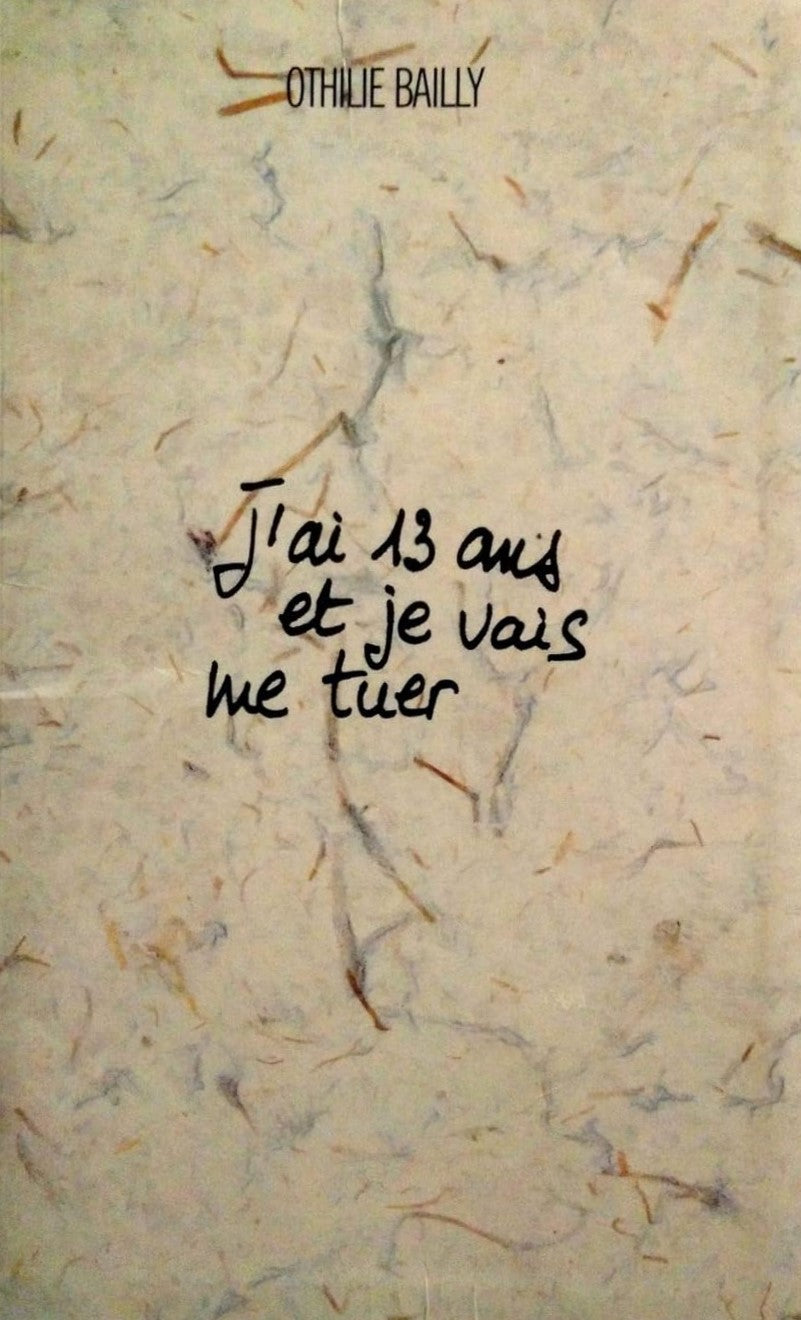 OTHILIE BAILLY
J'ai 13 ans
et je vais
me tuer